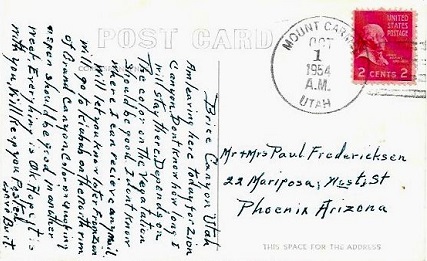 POST CARD
Brice Canyon Utah
Am leaving here today for Zion
Canyon. Dont know how long I
will stay there. Depends on
The color. The Vegatation
Should be good. I dont know
where I can recieve any mail.
Will let you know later. From Zion
will go to Kiabab on the north rim
of Grand Canyon. Color + quaking
aspen should be good in another
week. Everything is OK. Hope it is
with you. Will Keep you Posted
Bert
MOUNT CARMEL
OCT
1
1954
A.M.
UTAH
UNITED STATES
POSTAGE
2 CENTS 2
Mr + Mrs Paul Fredericksen
22 Mariposa, West, St
Phoenix Arizona
THIS SPACE FOR THE ADDRESS